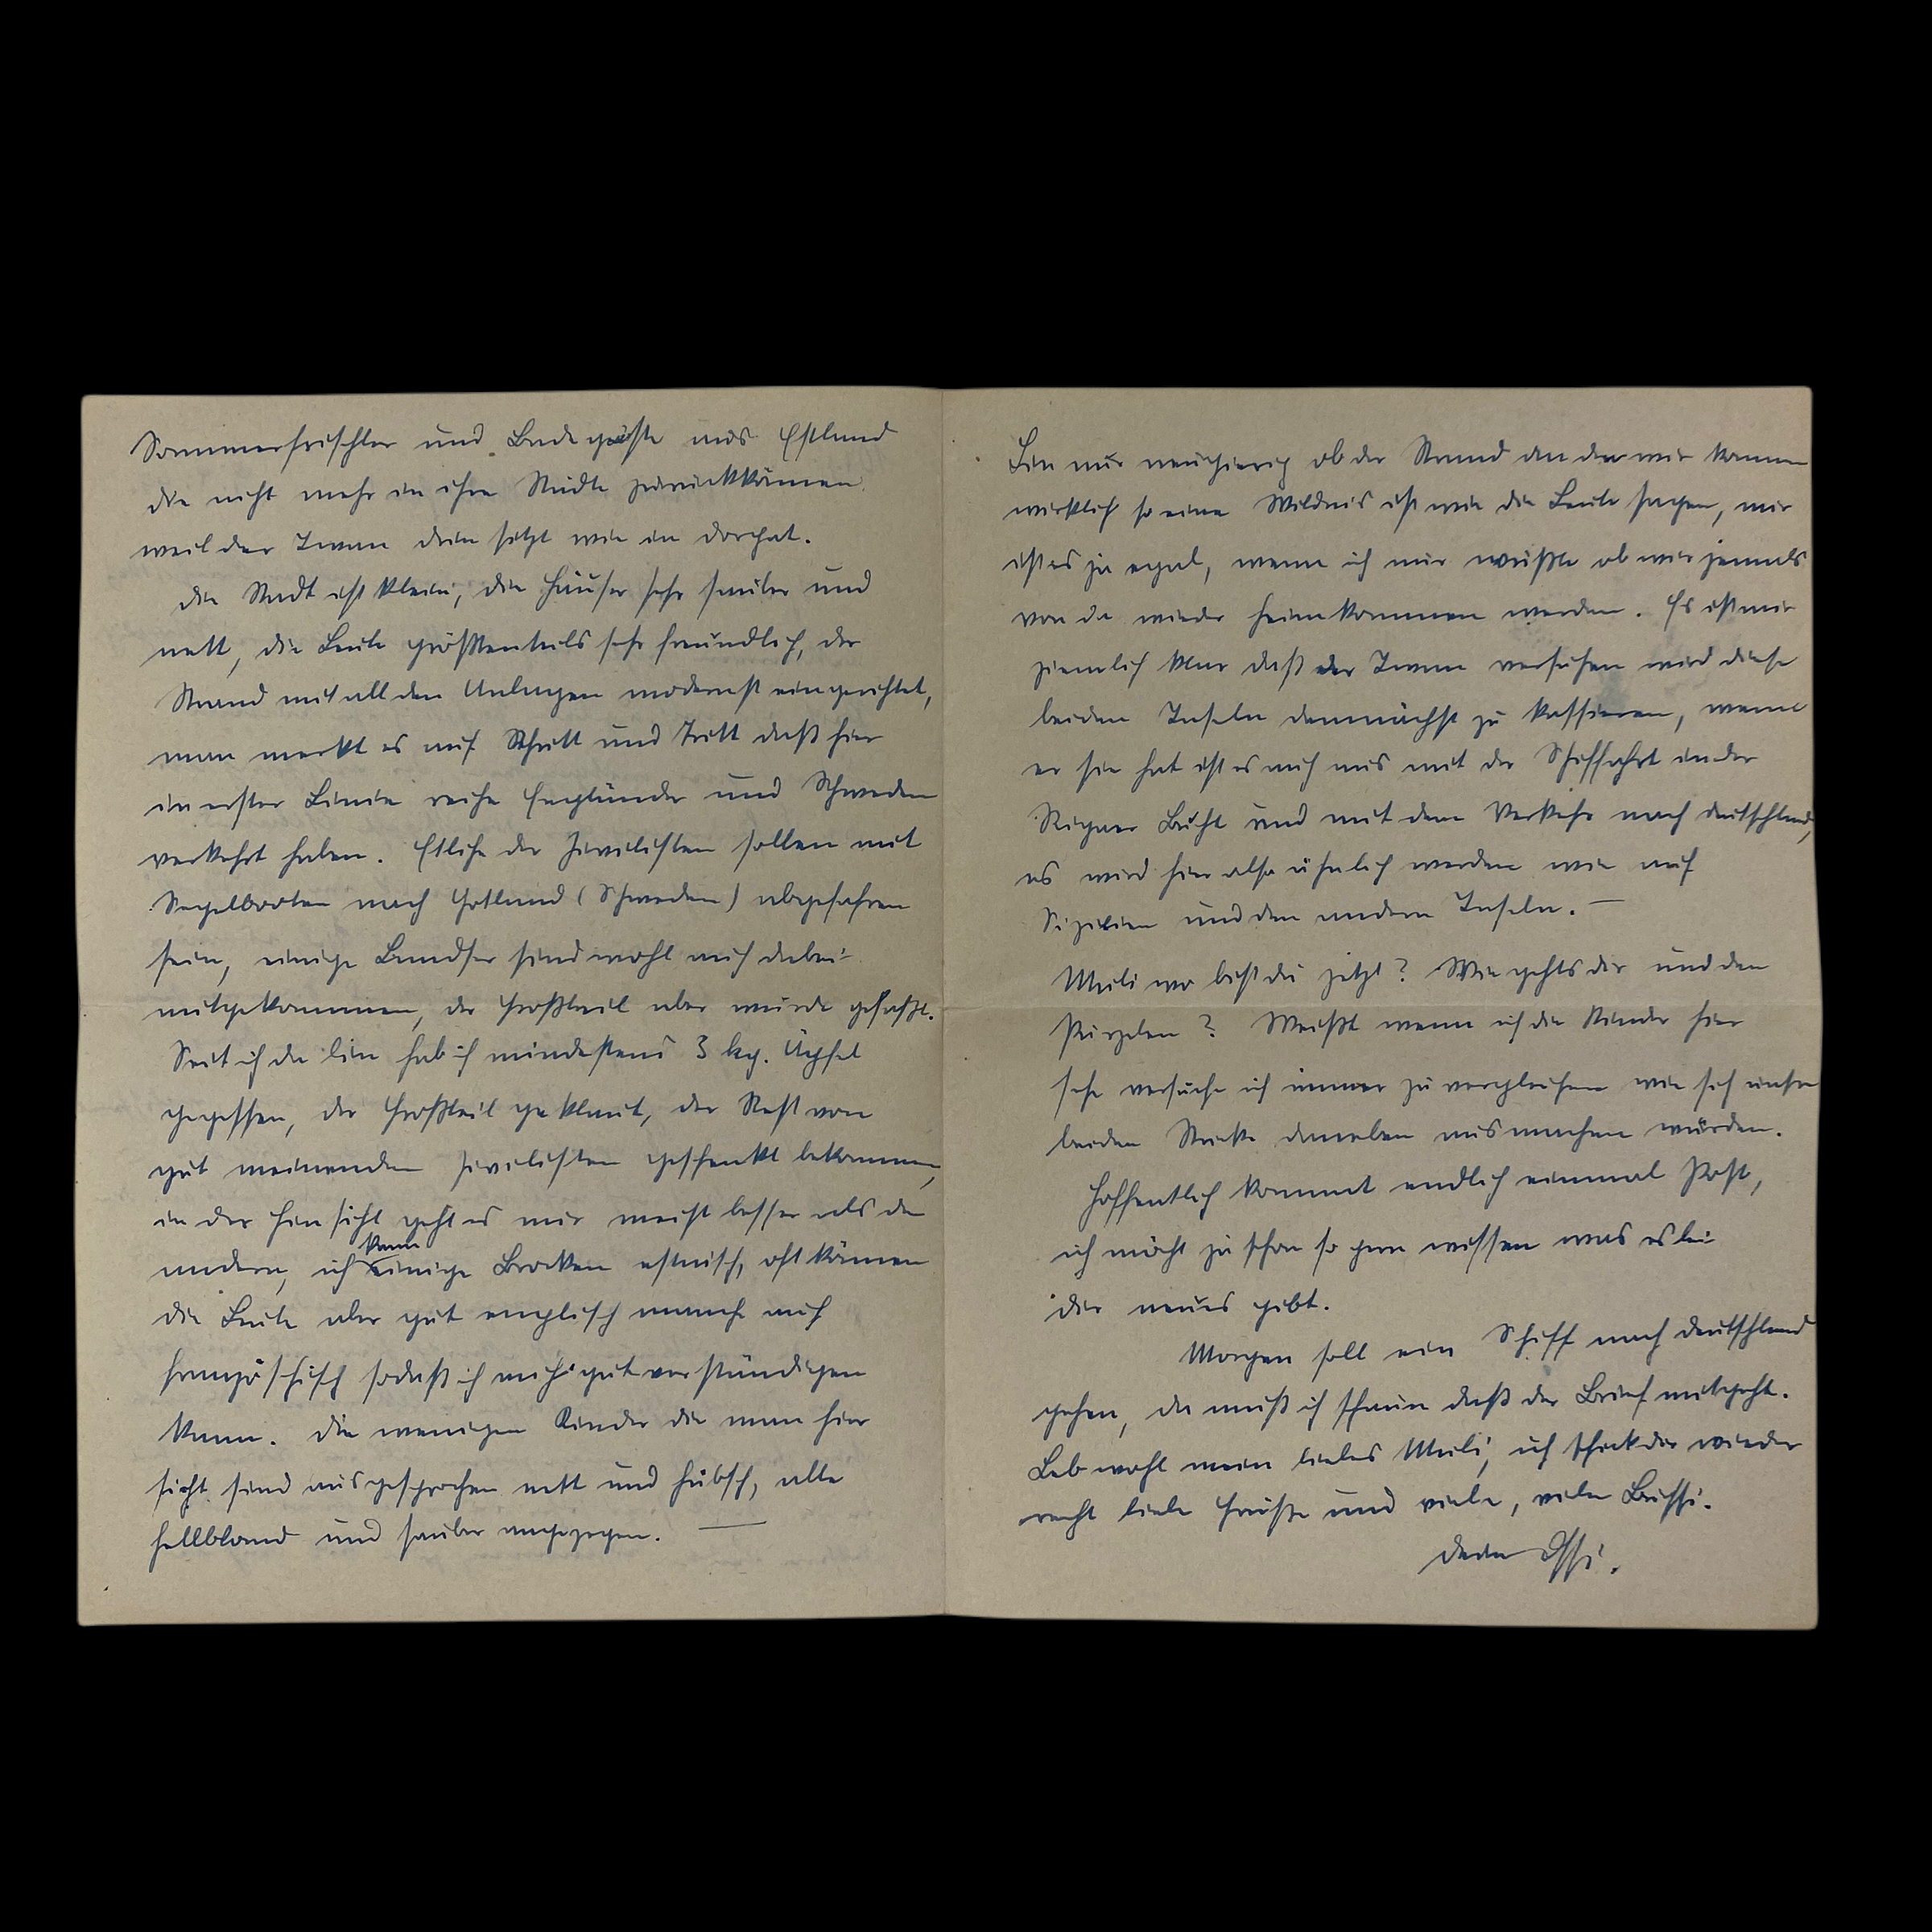 Sommerfrischler und Badegäste aus Estland
die nicht mehr in ihre Städte zurückkönnen
weil der Iwan drin sitzt wie in Dorpat.
Die Stadt ist klein, die Häuser sehr sauber und
nett, die Leute größtenteils sehr freundlich, der
Strand mit all den Anlagen modernst eingerichtet,
man merkt es auf Schritt und Tritt daß hier
in erster Linie reiche Engländer und Schweden
verkehrt haben. Etliche der Zivilisten sollen mit
Segelbooten nach Gotland (Schweden) abgefahren
sein, einige Landser sind wohl auch dabei
mitgekommen, der Großteil aber wurde gefaßt.
Seit ich da bin hab ich mindestens 3 kg. Äpfel
gegessen, der Großteil geklaut, der Rest von
gut meinenden Zivilisten geschenkt bekommen,
in der Hinsicht geht es mir meist besser als den
andern, ich kann einige Brocken estnisch, oft können
die Leute aber gut englisch manche auch
französchisch sodaß ich mich gut verständigen
kann. Die wenigen Kinder die man hier
sieht sind ausgesprochen nett und hübsch, alle
hellblond und sauber angezogen. —
Bin nur neugierig ob der Strand an den wir kommen
wirklich so eine Wildnis ist wie die Leute sagen, mir
ist es ja egal, wenn ich nur wüßte ob wir jemals
von da wieder heimkommen werden. Es ist mir
ziemlich klar daß der Iwan versuchen wird diese
beiden Inseln demnächst zu kassieren, wenn
er sie hat ist es auch aus mit der Schiffahrt in der
Rigaer Bucht und mit dem Verkehr nach Deutschland,
es wird hier also ähnlich werden wie auf
Sizilien und den andern Inseln. —
Muli wo bist du jetzt? Wie gehts dir und den
Purzeln? Weißt wenn ich die Kinder hier
sehe versuche ich immer zu vergleichen wie sich unsre
beiden Stücke daneben ausmachen würden.
Hoffentlich kommt endlich einmal Post,
ich möcht ja schon so gern wissen was es bei
dir neues gibt.
Morgen soll ein Schiff nach Deutschland
gehen, da muß ich schaun daß der Brief mitgeht.
Leb wohl mein liebes Muli, ich schick dir wieder
recht liebe Grüße und viele, viele Bussi.
Dein Ossi.